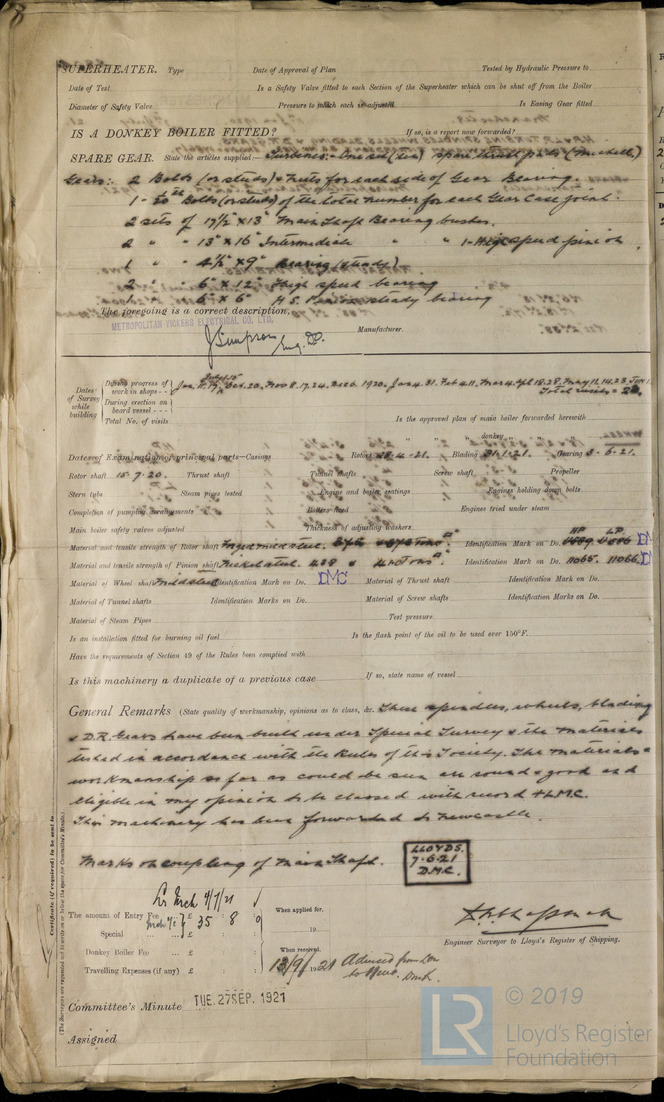 SUPERHEATER. Type Date of Approval of Plan Tested by Hydraulic Pressure to
Date of Test Is a Safety Valve fitted to each Section of the Superheater which can be shut off from the Boiler
Diameter of Safety Valve Pressure to which each is adjusted Is Easing Gear fitted
IS A DONKEY BOILER FITTED? If so, is a report now forwarded?
SPARE GEAR. State the articles supplied:— Turbines:- One set spare thrust pads (Michell)
Gears:- 2 Bolts (or studs) & Nuts for each side of Gear Bearing.
1-20th Bolts (or studs) of the total number for each Gear Case joint.
2 sets of 17½" x 13" Main Shaft Bearing bushes.
2 " " 13" x 16" Intermediate " " 1-High speed pinion
1 " " 4½" x 9" Bearing (steady)
2 " 6" x 12" High speed bearing
" 6" x 6" H.S. Pinion steady bearing
The foregoing is a correct description,
METROPOLITAN VICKERS ELECTRICAL CO. LTD. Manufacturer.
J Simpson Eng. Dp.
Dates of Survey while building
During progress of work in shops - - Oct. 20. Nov 8. 17. 24. Dec 6. 1920. Jan 4. 31. Feb 4. 11. Mar 4. Apl 18. 28. May 11. 14. 23. Jun 1.
During erection on board vessel - - - Total visits = 22.
Total No. of visits Is the approved plan of main boiler forwarded herewith
" " donkey " " "
Dates of Examination of principal parts—Casings Rotors 28-4-21. Blading 31-1-21. Gearing 3-6-21.
Rotor shaft 15-7-20. Thrust shaft Tunnel shafts Screw shaft Propeller
Stern tube Steam pipes tested Engine and boiler seatings Engines holding down bolts
Completion of pumping arrangements Boilers fixed Engines tried under steam
Main boiler safety valves adjusted Thickness of adjusting washers
Material and tensile strength of Rotor shaft Forged mild steel. Identification Mark on Do. HP LP
Material and tensile strength of Pinion shaft Nickel steel. Identification Mark on Do. 11065. 11066.
Material of Wheel shaft Mild steel Identification Mark on Do. DMC Material of Thrust shaft Identification Mark on Do.
Material of Tunnel shafts Identification Marks on Do. Material of Screw shafts Identification Marks on Do.
Material of Steam Pipes Test pressure
Is an installation fitted for burning oil fuel Is the flash point of the oil to be used over 150°F.
Have the requirements of Section 49 of the Rules been complied with
Is this machinery a duplicate of a previous case If so, state name of vessel
General Remarks (State quality of workmanship, opinions as to class, &c. These spindles, wheels, blading
& D.R. Gears have been built under Special Survey & the materials
tested in accordance with the Rules of this Society. The materials &
workmanship as far as could be seen are sound & good and
eligible in my opinion to be classed with record + LMC.
This machinery has been forwarded to Newcastle.
Marks on coupling of Main Shaft. LLOYDS.
7-6-21
D.M.C.
4/7/21
The amount of Entry Fee ... £ 35 : 8 : 0 When applied for,
Special ... ... £ : : 19
Donkey Boiler Fee ... £ : : When received,
Travelling Expenses (if any) £ : : 13/9/1921 Advised from Lon
Engineer Surveyor to Lloyd's Register of Shipping.
Committee's Minute TUE. 27 SEP. 1921
Assigned
Certificate (if required) to be sent to
(The Surveyors are requested not to write on or below the space for Committee's Minute.)
LR © 2019
Lloyd's Register
Foundation